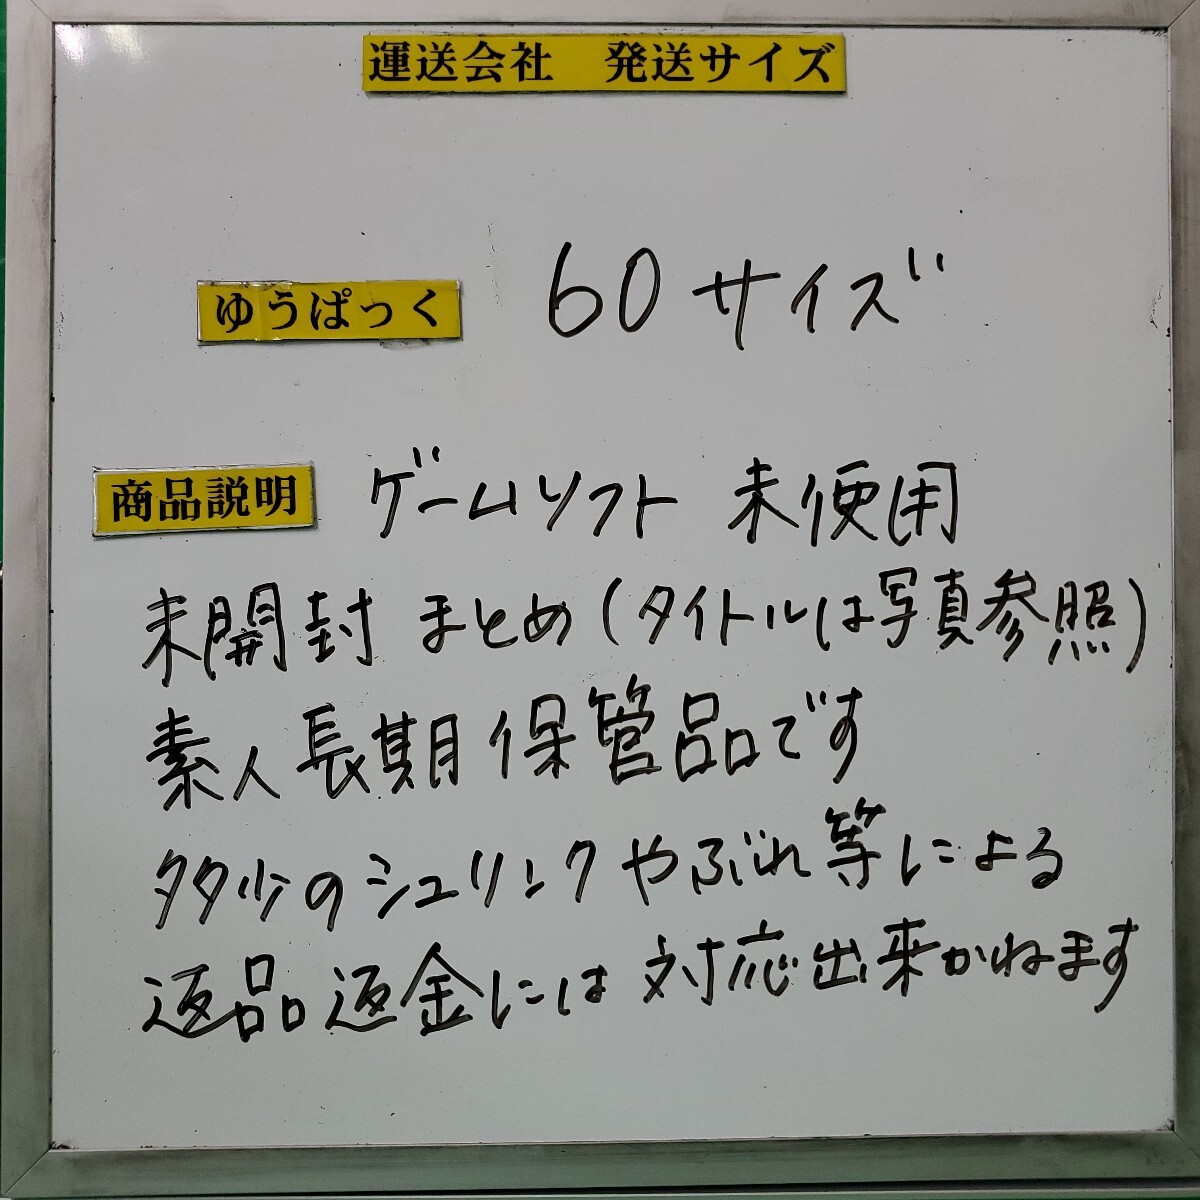 運送会社　発送サイズ
ゆうぱっく 60サイズ
商品説明 ゲームソフト 未使用
未開封 まとめ(タイトルは写真参照)
素人長期保管品です
多少のシュリンクやぶれ等による
返品返金には対応出来かねます